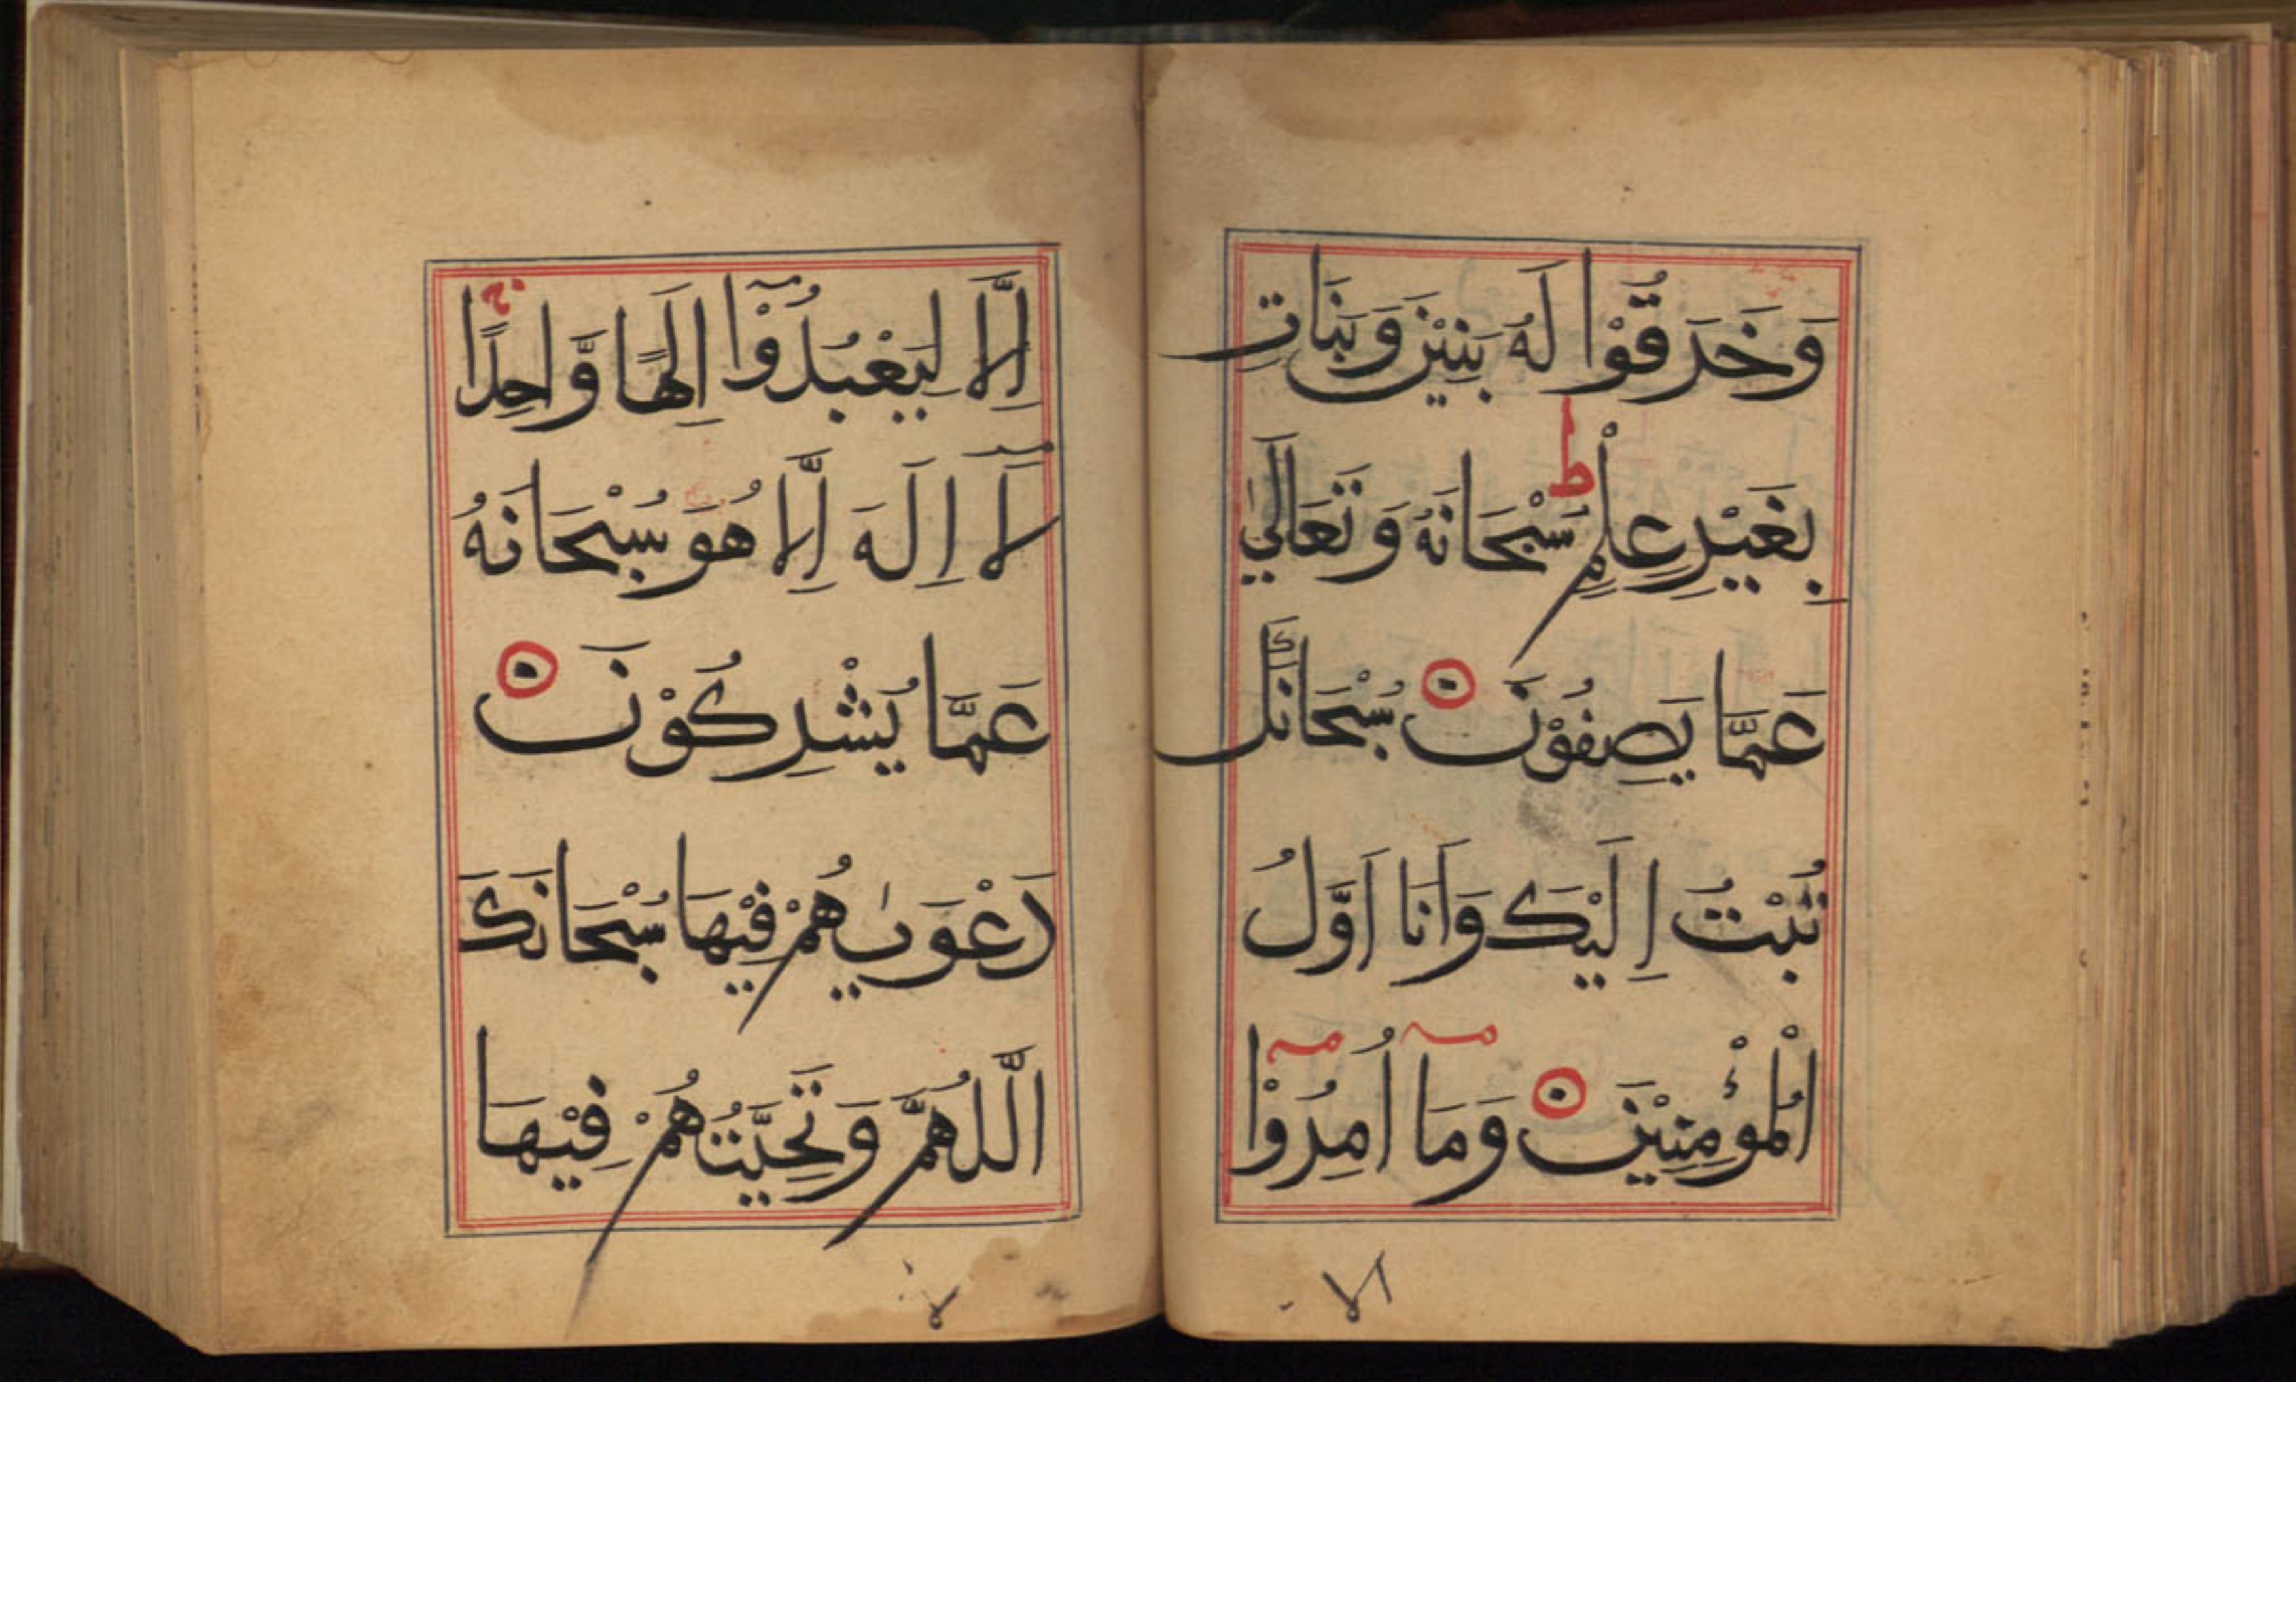 وَخَرَقُوْا لَهُ بَنِيْنَ وَبَنَاتٍ
بِغَيْرِ عِلْمٍ ط سُبْحَانَهُ وَتَعَالٰي
عَمَّا يَصِفُوْنَ ۝ سُبْحَانَكَ
تُبْتُ اِلَيْكَ وَاَنَا اَوَّلُ
الْمُؤْمِنِيْنَ ۝ وَمَآ اُمِرُوْٓا
اِلَّا لِيَعْبُدُوْٓا اِلَهًا وَّاحِدًا ج
لَآ اِلَهَ اِلَّا هُوَ سُبْحَانَهُ
عَمَّا يُشْرِكُوْنَ ۝
دَعْوٰيهُمْ فِيْهَا سُبْحَانَكَ
اللَّهُمَّ وَتَحِيَّتُهُمْ فِيْهَا